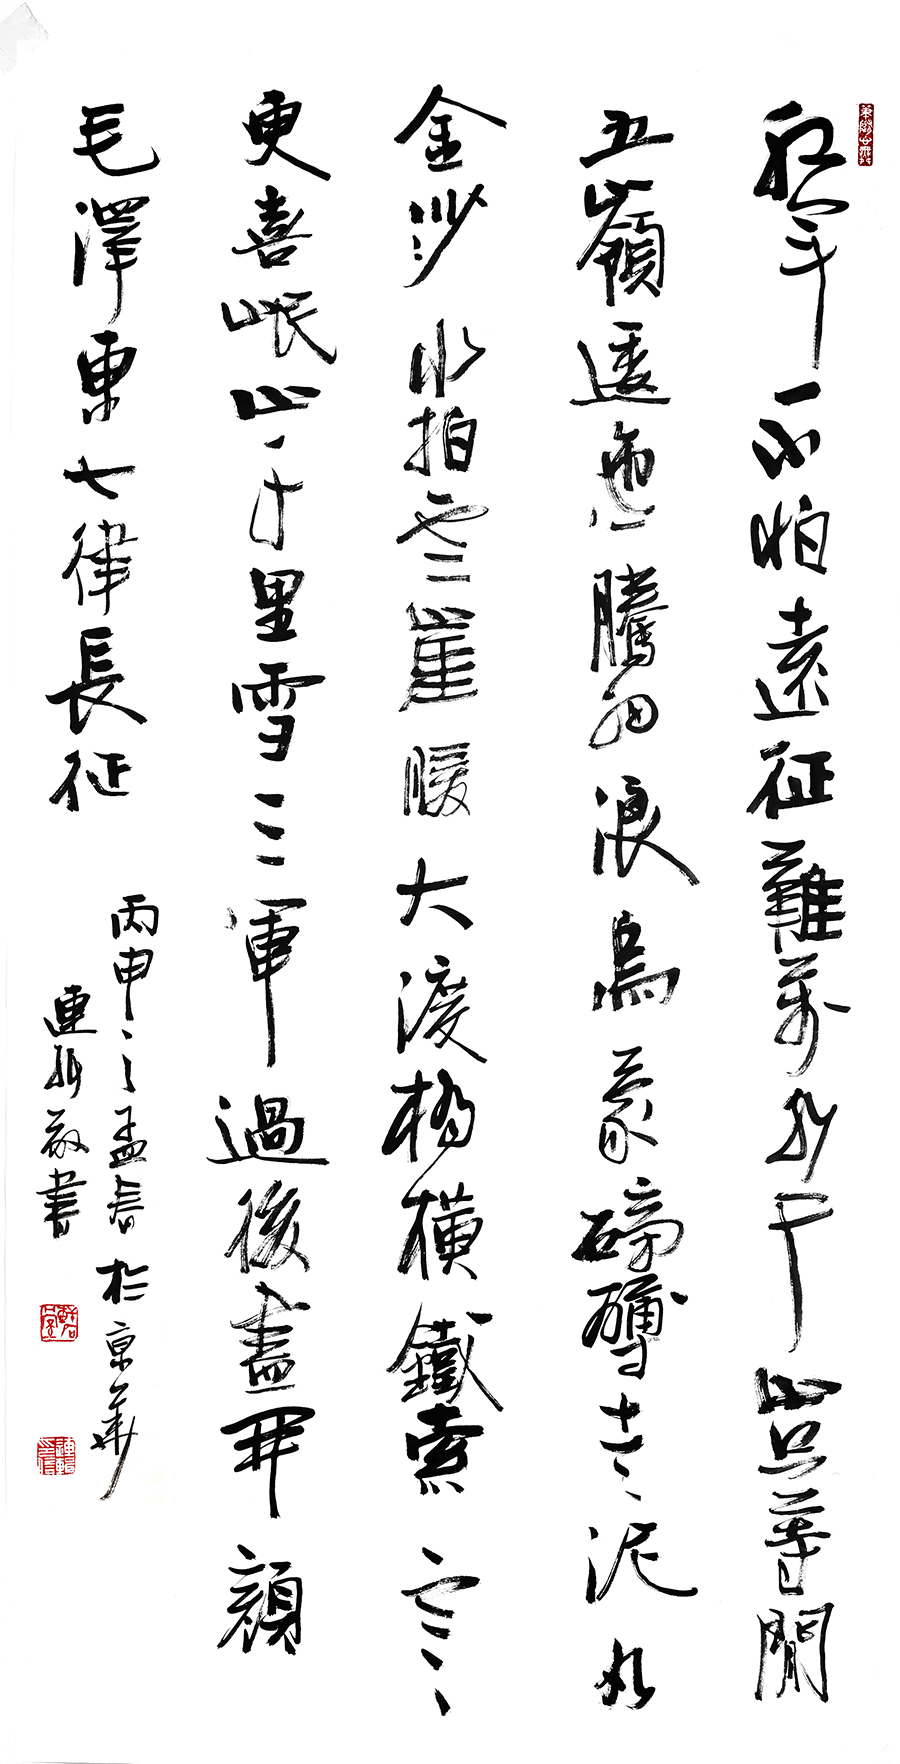 紅軍不怕遠征難萬水千山只等閒
五嶺逶迤騰細浪烏蒙磅礴走泥丸
金沙水拍雲崖暖大渡橋橫鐵索寒
更喜岷山千里雪三軍過後盡開顏
毛澤東七律長征
丙申之孟春於京華
連輯敬書